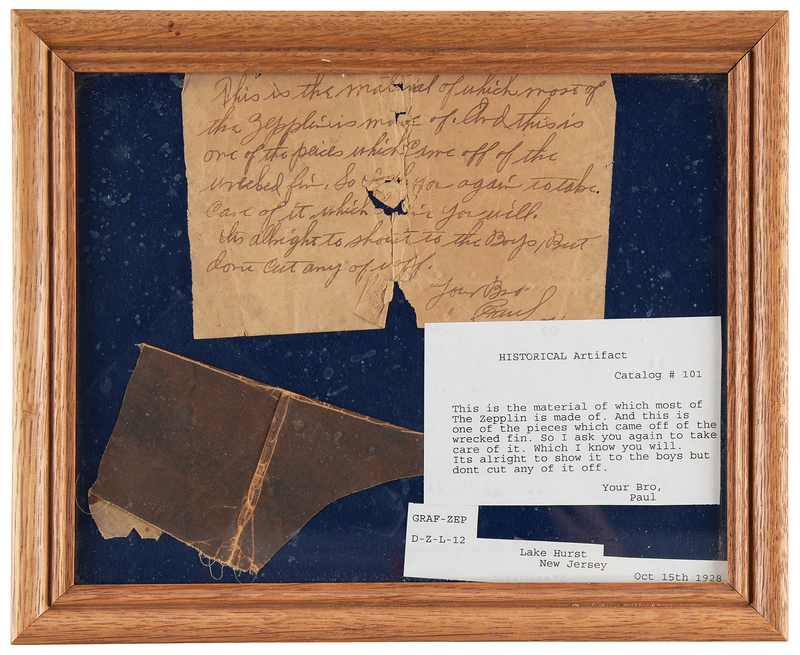 This is the material of which most of
the Zepplin is made of. And this is
one of the peices which came off of the
wrecked fin. So I ask you again to take
care of it, which I know you will.
Its allright to shout to the Boys, But
dont cut any of it off.
Your Bro.
Paul
HISTORICAL Artifact
Catalog # 101
This is the material of which most of
The Zepplin is made of. And this is
one of the pieces which came off of the
wrecked fin. So I ask you again to take
care of it. Which I know you will.
Its alright to show it to the boys but
dont cut any of it off.
Your Bro,
Paul
GRAF-ZEP
D-Z-L-12
Lake Hurst
New Jersey
Oct 15th 1928